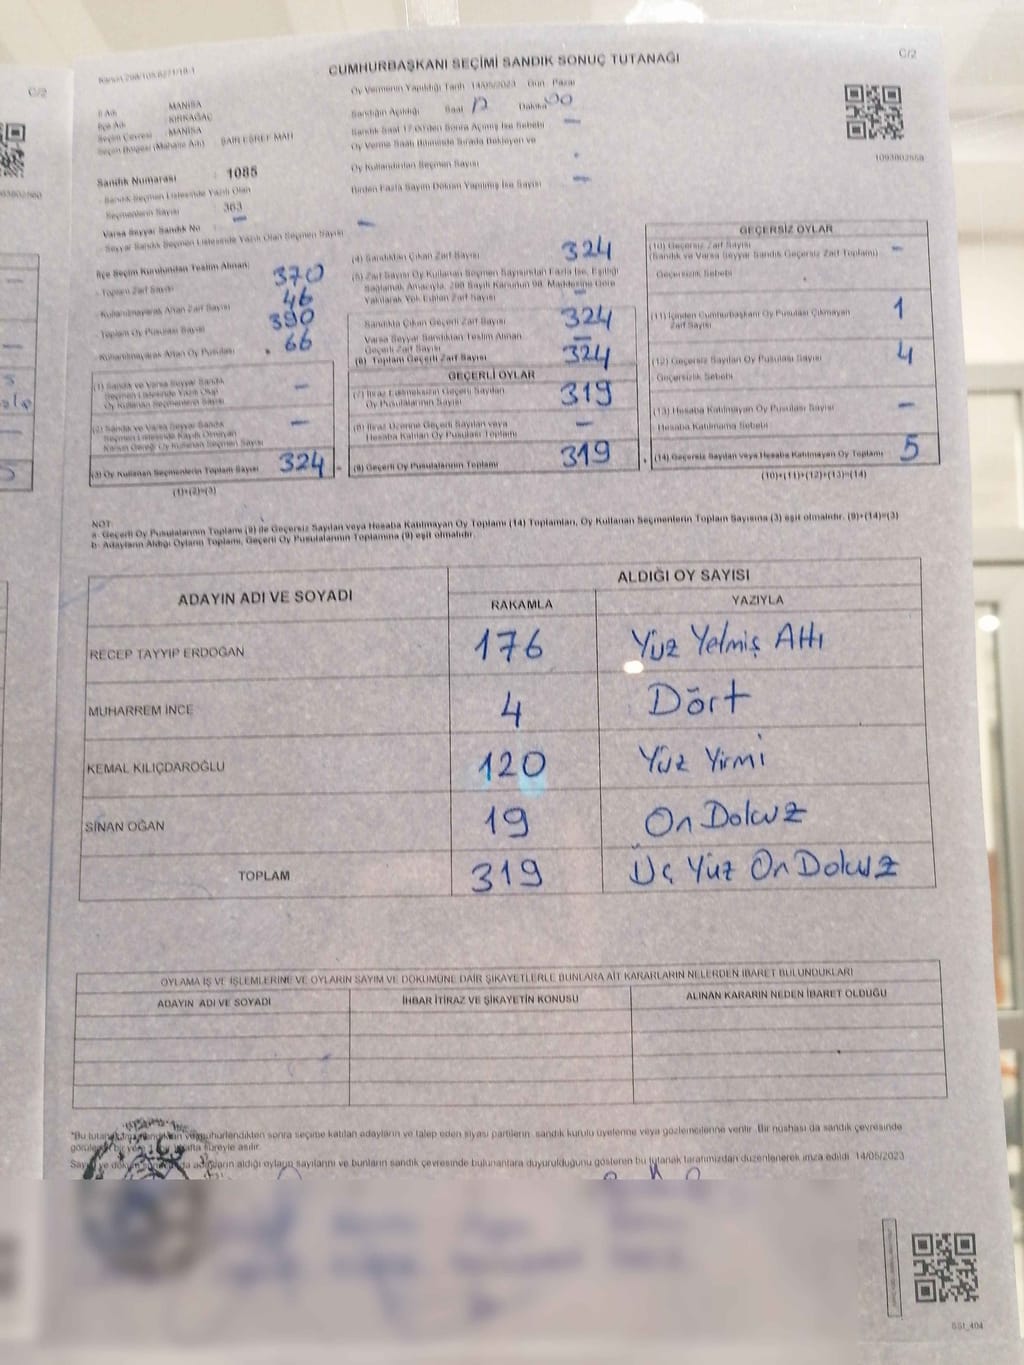 C/2
CUMHURBAŞKANI SEÇİMİ SANDIK SONUÇ TUTANAĞI
C/2
Oy Vermenin Yapıldığı Tarih 14/05/2023 Gün Pazar
İl Adı MANİSA
İlçe Adı KIRKAĞAÇ
Seçim Çevresi MANİSA
Seçim Bölgesi (Mahalle Adı) ŞAİR EŞREF MAH
Sandığın Açıldığı Saat Dakika 00
Sandık Saat 17:00'den Sonra Açılmış İse Sebebi —
Oy Verme Saati Bitiminde Sırada Bekleyen ve
Oy Kullandırılan Seçmen Sayısı
Birden Fazla Sayım Döküm Yapılmış İse Sayısı —
1093802559
Sandık Numarası : 1085
Sandık Seçmen Listesinde Yazılı Olan
Seçmenlerin Sayısı 363
Varsa Seyyar Sandık No —
Seyyar Sandık Seçmen Listesinde Yazılı Olan Seçmen Sayısı —
İlçe Seçim Kurulundan Teslim Alınan:
- Toplam Zarf Sayısı 370
- Kullanılmayarak Artan Zarf Sayısı 46
- Toplam Oy Pusulası Sayısı 390
- Kullanılmayarak Artan Oy Pusulası 66
(1) Sandık ve Varsa Seyyar Sandık
Seçmen Listesinde Yazılı Olup
Oy Kullanan Seçmenlerin Sayısı —
(2) Sandık ve Varsa Seyyar Sandık
Seçmen Listesinde Kayıtlı Olmayan
Kanun Gereği Oy Kullanan Seçmen Sayısı —
(3) Oy Kullanan Seçmenlerin Toplam Sayısı 324
(1)+(2)=(3)
(4) Sandıktan Çıkan Zarf Sayısı 324
(5) Zarf Sayısı Oy Kullanan Seçmen Sayısından Fazla İse, Eşitliği
Sağlamak Amacıyla, 298 Sayılı Kanunun 98. Maddesine Göre
Yakılarak Yok Edilen Zarf Sayısı —
Sandıkta Çıkan Geçerli Zarf Sayısı 324
Varsa Seyyar Sandıktan Teslim Alınan
Geçerli Zarf Sayısı —
(6) Toplam Geçerli Zarf Sayısı 324
GEÇERLİ OYLAR
(7) İtiraz Edilmeksizin Geçerli Sayılan
Oy Pusulalarının Sayısı 319
(8) İtiraz Üzerine Geçerli Sayılan veya
Hesaba Katılan Oy Pusulası Toplamı —
(9) Geçerli Oy Pusulalarının Toplamı 319
GEÇERSİZ OYLAR
(10) Geçersiz Zarf Sayısı
(Sandık ve Varsa Seyyar Sandık Geçersiz Zarf Toplamı) —
Geçersizlik Sebebi
(11) İçinden Cumhurbaşkanı Oy Pusulası Çıkmayan
Zarf Sayısı 1
(12) Geçersiz Sayılan Oy Pusulası Sayısı 4
Geçersizlik Sebebi
(13) Hesaba Katılmayan Oy Pusulası Sayısı —
Hesaba Katılmama Sebebi
(14) Geçersiz Sayılan veya Hesaba Katılmayan Oy Toplamı 5
(10)+(11)+(12)+(13)=(14)
NOT:
a- Geçerli Oy Pusulalarının Toplamı (9) ile Geçersiz Sayılan veya Hesaba Katılmayan Oy Toplamı (14) Toplamları, Oy Kullanan Seçmenlerin Toplam Sayısına (3) eşit olmalıdır. (9)+(14)=(3)
b- Adayların Aldığı Oyların Toplamı, Geçerli Oy Pusulalarının Toplamına (9) eşit olmalıdır.
ADAYIN ADI VE SOYADI
ALDIĞI OY SAYISI
RAKAMLA YAZIYLA
RECEP TAYYIP ERDOĞAN 176 Yüz Yetmiş Altı
MUHARREM İNCE 4 Dört
KEMAL KILIÇDAROĞLU 120 Yüz Yirmi
SİNAN OĞAN 19 On Dokuz
TOPLAM 319 Üç Yüz On Dokuz
OYLAMA İŞ VE İŞLEMLERİNE VE OYLARIN SAYIM VE DÖKÜMÜNE DAİR ŞİKAYETLERLE BUNLARA AİT KARARLARIN NELERDEN İBARET BULUNDUKLARI
ADAYIN ADI VE SOYADI İHBAR İTİRAZ VE ŞİKAYETİN KONUSU ALINAN KARARIN NEDEN İBARET OLDUĞU
*Bu sonra seçime katılan adayların ve talep eden siyasi partilerin sandık kurulu üyelerine veya gözlemcilerine verilir. Bir nüshası da sandık çevresinde
süreyle asılır.
adayların aldığı oyların sayılarını ve bunların sandık çevresinde bulunanlara duyurulduğunu gösteren bu tutanak tarafımızdan düzenlenerek imza edildi. 14/05/2023
SS1_404